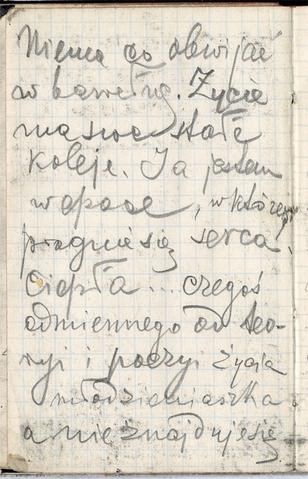 Niema co obwijać
w bawełnę. Życie
ma swe stałe
koleje. Ja jestem
w epoce, w której
pragnie się serca
ciepła... czegoś
odmiennego od teo-
ryi i poezyi życia
młodzieniaszka
a nie znajduje się